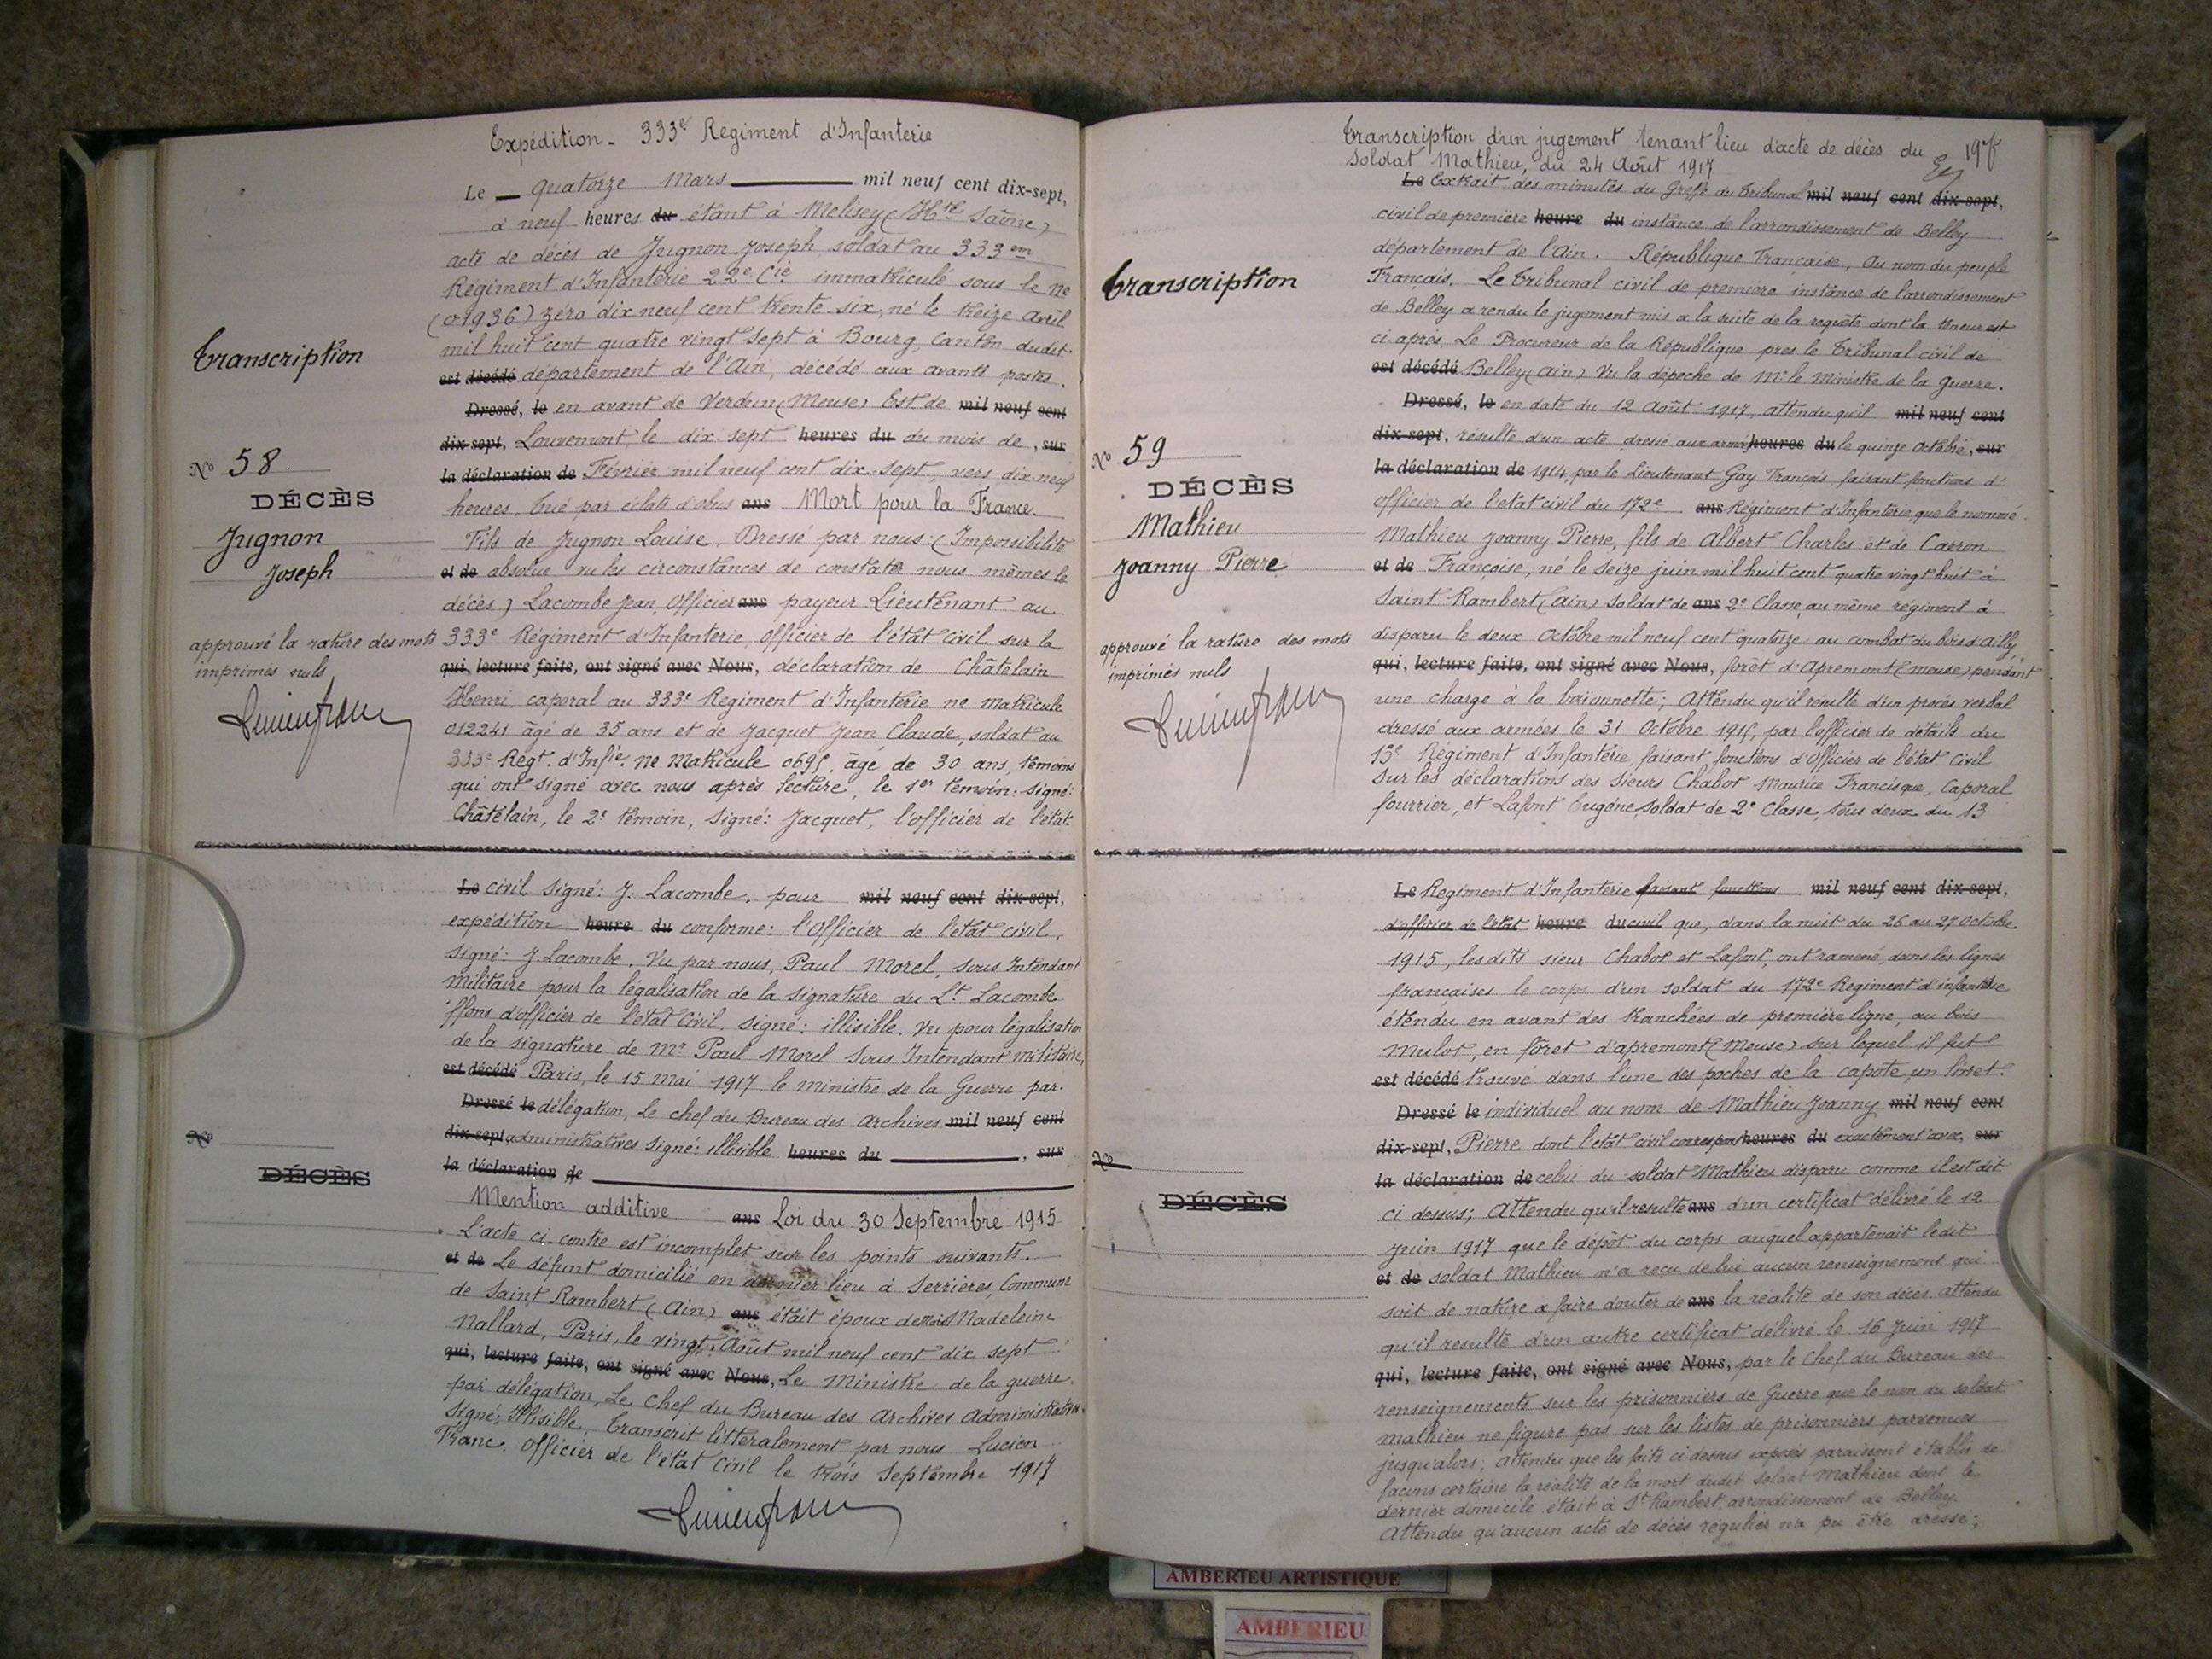 Expédition - 333e Regiment d'Infanterie
Le quatorze Mars mil neuf cent dix-sept,
à neuf heures du étant à Mélisey (Hte Saône)
acte de décès de Jugnon Joseph soldat au 333em
Régiment d'Infanterie 22e Cie immatriculé sous le No
(01936) zéro dix neuf cent trente six, né le treize avril
mil huit cent quatre vingt sept à Bourg, canton dudit
est décédé département de l'Ain, décédé aux avants postes.
Dressé, le en avant de Verdun (Meuse) Est de mil neuf cent
dix-sept, Louvemont, le dix-sept heures du du mois de, sur
la déclaration de Février mil neuf cent dix-sept, vers dix-neuf
heures, tué par éclats d'obus ans Mort pour la France.
Fils de Jugnon Louise. Dressé par nous (Impossibilité
et de absolue vu les circonstances de constater nous mêmes le
décès) Lacombe Jean, Officier ans payeur Lieutenant au
333e Régiment d'Infanterie, officier de l'état civil sur la
qui, lecture faite, ont signé avec Nous, déclaration de Châtelain
Henri caporal au 333e Regiment d'Infanterie no Matricule
012241 âgé de 35 ans et de Jacquet Jean Claude, soldat au
333e Regt. d'Infie. No Matricule 0695, âgé de 30 ans, témoins
qui ont signé avec nous après lecture, le 1er témoin: signé:
Châtelain, le 2e témoin, signé: Jacquet, l'officier de l'état
Transcription
No 58
DÉCÈS
Jugnon
Joseph
approuvé la rature des mots
imprimés nuls
Le civil signé: J. Lacombe. pour mil neuf cent dix-sept,
expédition heure du conforme: l'Officier de l'état civil,
signé: J. Lacombe. Vu par nous, Paul Morel, Sous Intendant
Militaire pour la légalisation de la signature du Lt Lacombe
ffons d'officier de l'état Civil. Signé: illisible. Vu pour légalisation
de la signature de Mr Paul Morel Sous Intendant militaire,
est décédé Paris, le 15 Mai 1917 le ministre de la Guerre par.
Dressé le délégation, Le chef du Bureau des Archives mil neuf cent
dix-sept administratives Signé: illisible heures du , sur
la déclaration de
Mention additive ans Loi du 30 Septembre 1915
L'acte ci-contre est incomplet sur les points suivants.
et de Le défunt domicilié en dernier lieu à Serrières, Commune
de Saint Rambert (Ain) ans était époux de Madeleine
Nallard, Paris, le vingt Août mil neuf cent dix sept
qui, lecture faite, ont signé avec Nous, Le Ministre de la guerre.
par délégation, Le Chef du Bureau des Archives Administratives
Signé: Illisible. Transcrit littéralement par nous Lucien
Franc, Officier de l'état Civil le trois Septembre 1917
No
DÉCÈS
Transcription d'un jugement tenant lieu d'acte de décès du
soldat Mathieu, du 24 Août 1917
Le Extrait des minutes du Greffe du Tribunal mil neuf cent dix-sept,
civil de première heure du instance de l'arrondissement de Belley
département de l'Ain. République Française, Au nom du peuple
Français. Le Tribunal civil de première instance de l'arrondissement
de Belley a rendu le jugement mis à la suite de la requête dont la teneur est
ci après, Le Procureur de la République près le Tribunal civil de
est décédé Belley (Ain) Vu la dépeche de Mr le Ministre de la Guerre.
Dressé, le en date du 12 Août 1917, attendu qu'il mil neuf cent
dix-sept, résulte d'un acte dressé aux armées heures du le quinze octobre, sur
la déclaration de 1914, par le Lieutenant Gay François faisant fonctions d'
officier de l'état civil du 172e ans Régiment d'Infanterie, que le nommé
Mathieu Joanny Pierre, fils de Albert Charles et de Carron
et de Françoise, né le Seize juin mil huit cent quatre vingt huit à
Saint Rambert (Ain) Soldat de ans 2e Classe, au même régiment à
disparu le deux Octobre mil neuf cent quatorze au combat du bois d'Ailly,
qui, lecture faite, ont signé avec Nous, forêt d'Apremont (Meuse) pendant
une charge à la baïonnette; Attendu qu'il résulte d'un procès verbal
dressé aux armées le 31 Octobre 1915, par l'officier de détails du
13e Régiment d'Infanterie, faisant fonctions d'Officier de l'état Civil
sur les déclarations des Sieurs Chabot Maurice Francisque, Caporal
fourrier, et Lafont Eugène, Soldat de 2e Classe, tous deux du 13
Transcription
No 59
DÉCÈS
Mathieu
Joanny Pierre
approuvé la rature des mots
imprimés nuls
Le Regiment d'Infanterie faisant fonctions mil neuf cent dix-sept,
d'officier de l'état heure du civil que, dans la nuit du 26 au 27 Octobre
1915, les dits sieur Chabot et Lafont, ont ramené, dans les lignes
françaises le corps d'un soldat du 172e Regiment d'infanterie
étendu en avant des tranchées de première ligne, au bois
Mulot, en fôret d'apremont (Meuse) sur lequel il fut
est décédé trouvé dans l'une des poches de la capote, un livret.
Dressé le individuel au nom de Mathieu Joanny mil neuf cent
dix-sept, Pierre dont l'état civil correspond heures du exactement avec, sur
la déclaration de celui du soldat Mathieu disparu comme il est dit
ci dessus; Attendu qu'il resulte ans d'un certificat délivré le 12
Juin 1917 que le dépôt du corps auquel appartenait ledit
et de soldat Mathieu n'a reçu de lui aucun renseignement qui
soit de nature à faire douter de ans la réalité de son décès. attendu
qu'il résulte d'un autre certificat délivré le 16 Juin 1917
qui, lecture faite, ont signé avec Nous, par le Chef du Bureau des
renseignements sur les prisonniers de Guerre que le nom du soldat
Mathieu ne figure pas sur les listes de prisonniers parvenues
jusqu'alors; attendu que les faits ci-dessus exposés paraissent établir de
facons certaine la réalité de la mort dudit Soldat Mathieu dont le
dernier domicile était à St Rambert, arrondissement de Belley.
Attendu qu'aucun acte de décès régulier n'a pu être dressé;
No
DÉCÈS
AMBERIEU ARTISTIQUE
AMBERIEU